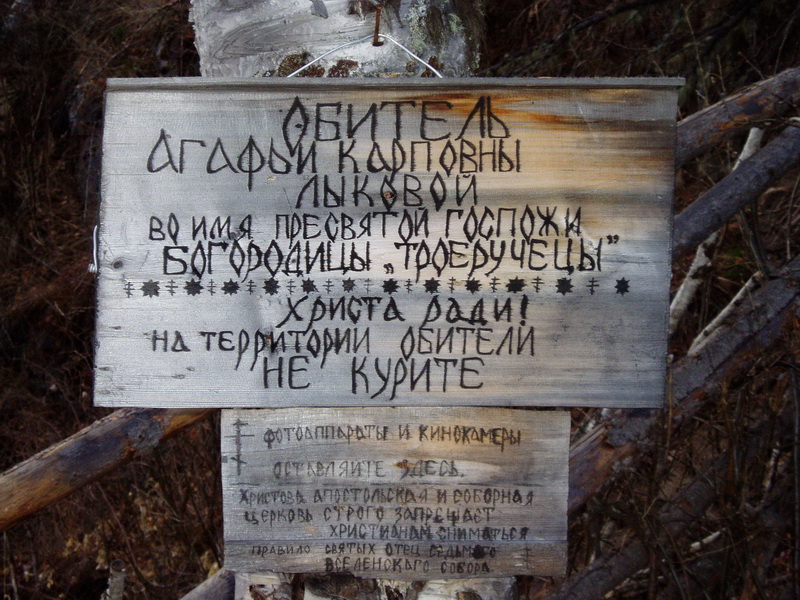 ОБИТЕЛЬ
АГАФЬИ КАРПОВНЫ
ЛЫКОВОЙ
ВО ИМЯ ПРЕСВЯТОЙ ГОСПОЖИ
БОГОРОДИЦЫ „ТРОЕРУЧЕЦЫ”
ХРИСТА РАДИ!
НА ТЕРРИТОРИИ ОБИТЕЛИ
НЕ КУРИТЕ
ФОТОАППАРАТЫ И КИНОКАМЕРЫ
ОСТАВЛЯЙТЕ ЗДЕСЬ.
ХРИСТОВА АПОСТОЛЬСКАЯ И СОБОРНАЯ
ЦЕРКОВЬ СТРОГО ЗАПРЕЩАЕТ
ХРИСТИАНАМ СНИМАТЬСЯ
ПРАВИЛО СВЯТЫХ ОТЕЦ СЕДЬМАГО
ВСЕЛЕНСКАГО СОБОРА.